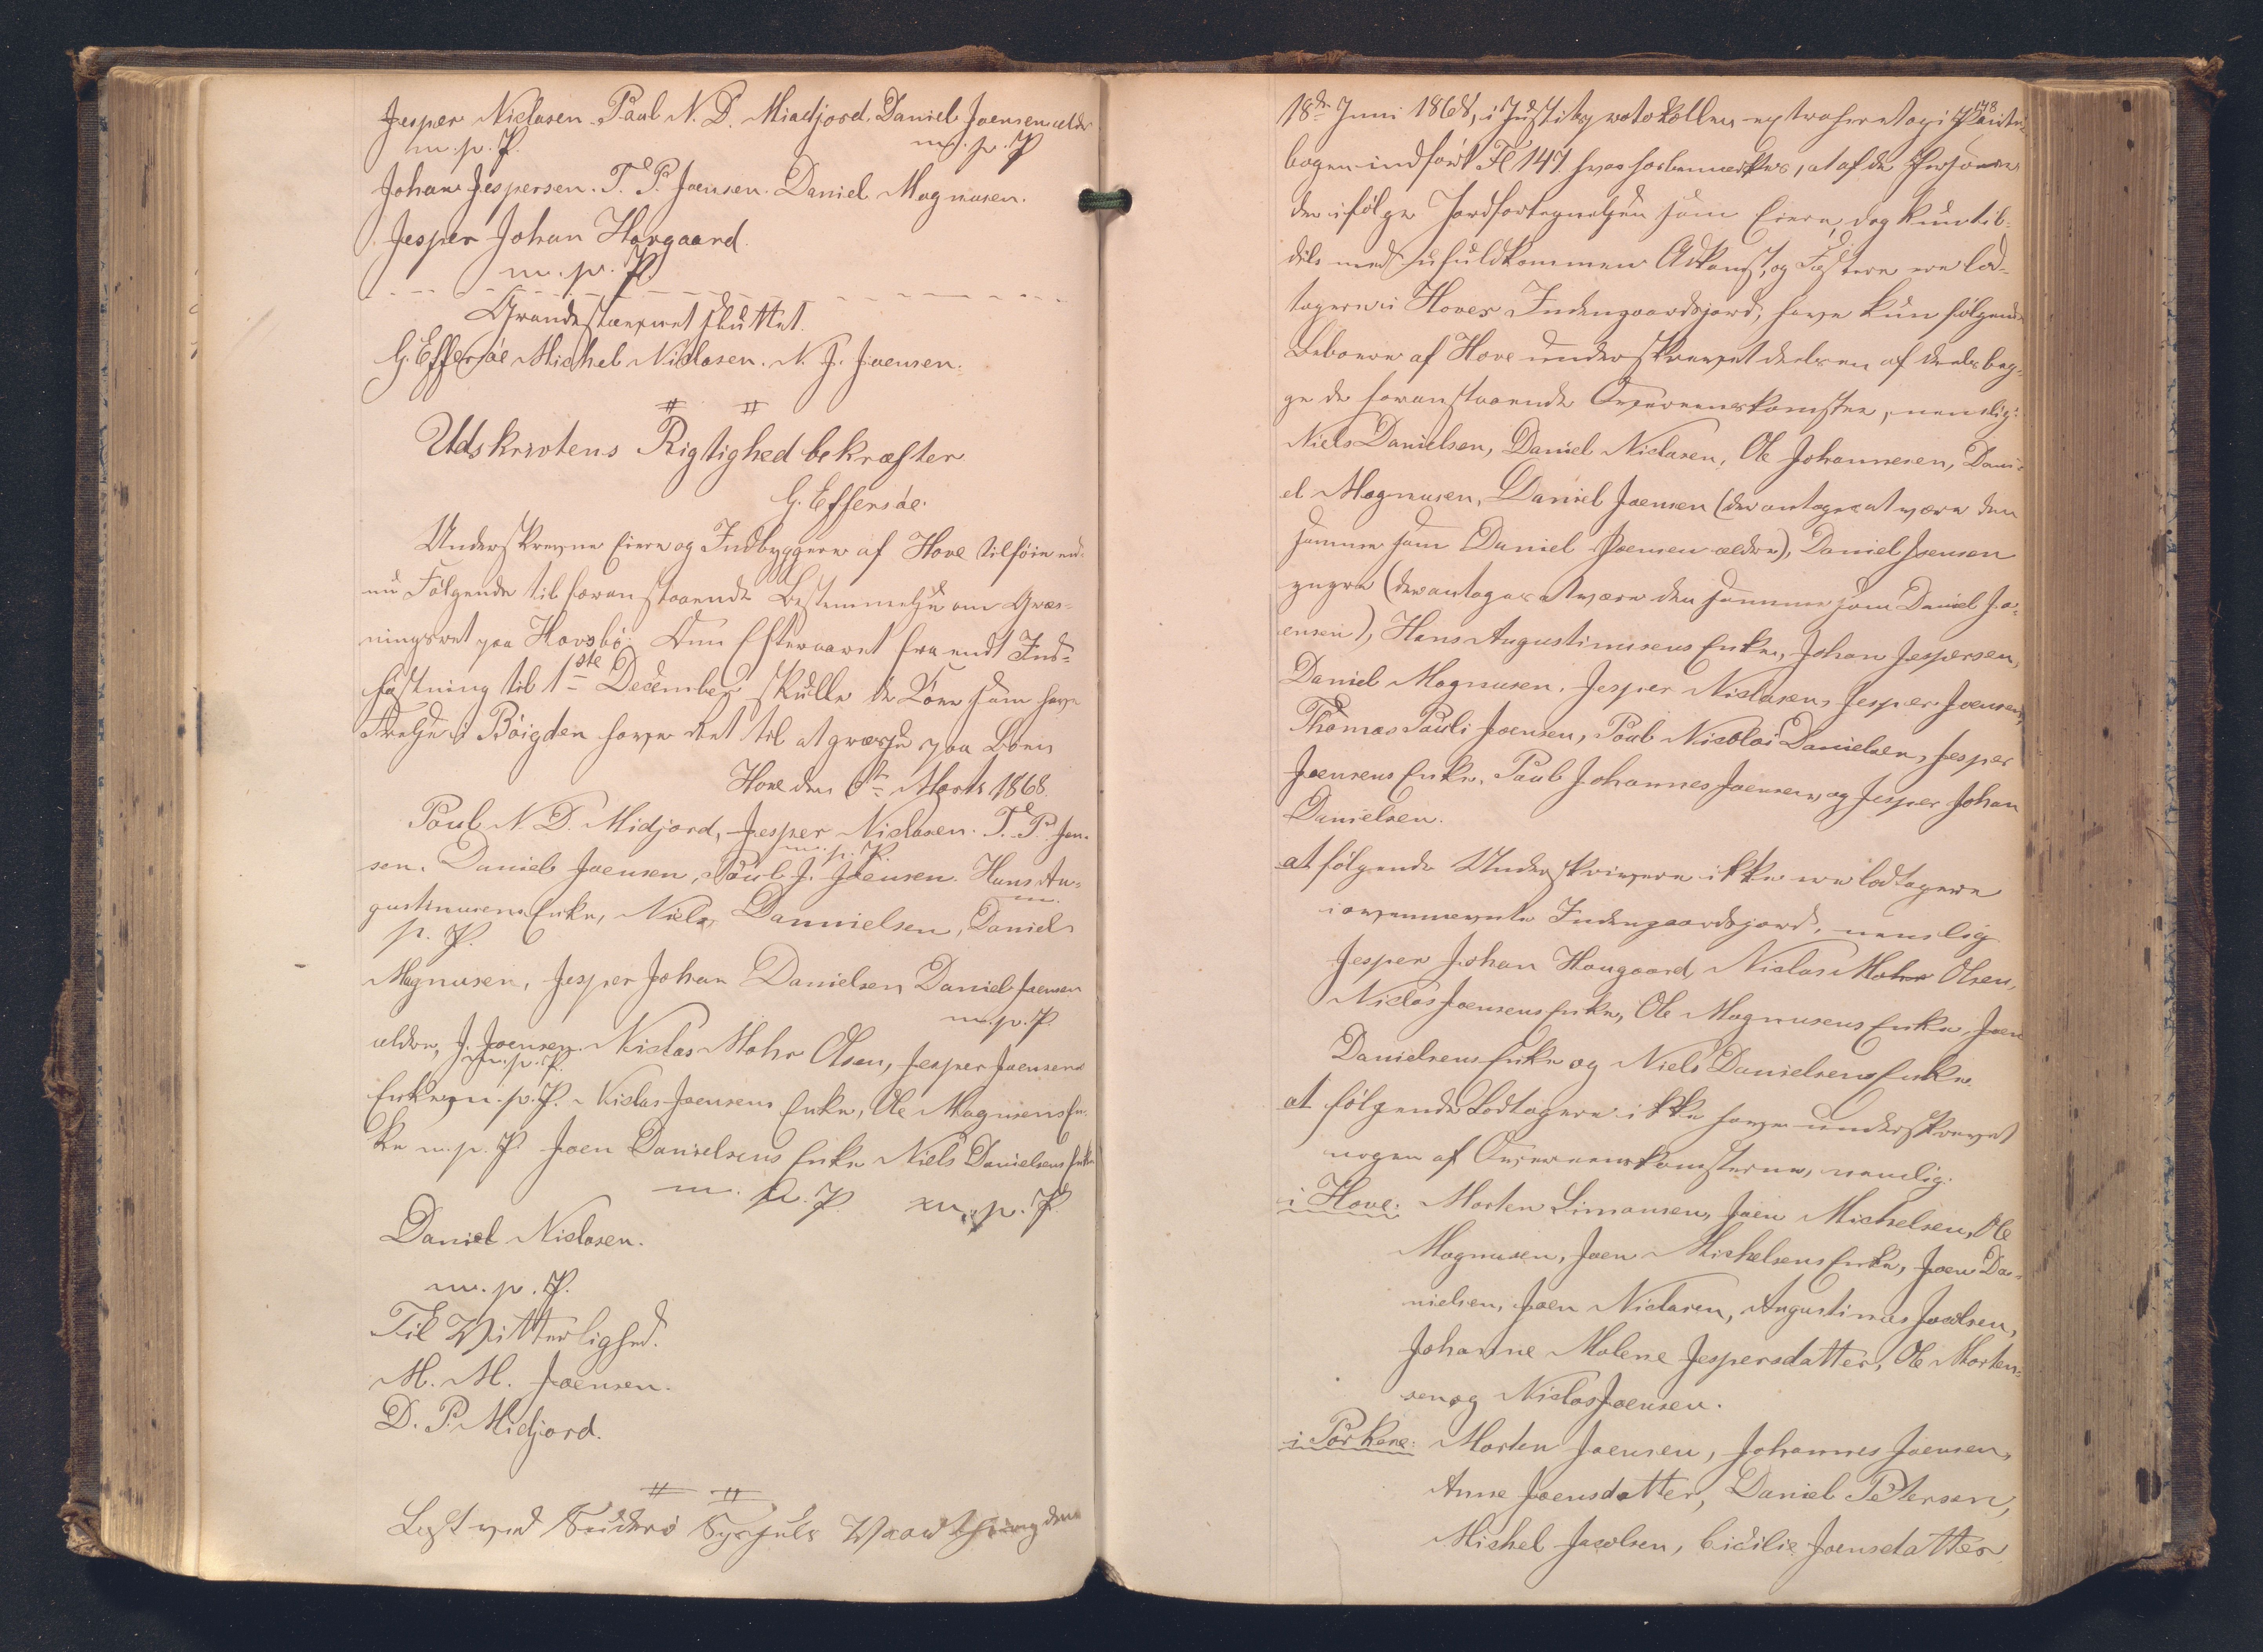 Jesper Niclasen. Paul N. D. Miadjord. Daniel Joensen ældre
m. p. P. m. p. P
Johan Jespersen. T. P. Joensen. Daniel Magnusen.
Jesper Johan Horgaard.
m. p. P.
Grandestævnet sluttet.
G. Effersöe Michel Niclasen. N. J. Joensen.
Udskrivtens Rigtighed bekræfter
G. Effersöe.
Underskrevne Eiere og Indbyggere af Hove tilföie end-
nu Fölgende til foranstaaende Bestemmelse om Græs-
ningsret paa Hovsbö: Om Efteraaret fra endt Ind-
høstning til 1ste December skulle de Köer som have
Trælse i Böigden have Ret til at græsse paa Böen
Hove den 6te Marts 1868.
Poul N. D. Midjord, Jesper Niclasen. T. P. Joen-
m. p. P.
sen. Daniel Joensen, Poul J. Joensen. Hans Au-
m.
gustinusens Enke, Niels Dannielsen, Daniel
p. P.
Magnusen, Jesper Johan Danielsen Daniel Joensen
m. p. P.
ældre, J. Joensen. Niclas Mohr Olsen, Jesper Joensens
m. p. P.
Enke m. p. P. Niclas Joensens Enke, Ole Magnusens En-
ke m. p. P Joen Danielsens Enke Niels Danielsens Enke
m. p. P. m. p. P.
Daniel Niclasen.
m. p. P.
Til Vitterlighed.
M. M. Joensen.
D. P. Midjord.
Læst ved Suderö Syssels Vaarthing den
178
18de Juni 1868, i Justitsprotokollen extraheret og i Pante-
bogen indfört Fl 147 hvor forbemærkes, at af de Personer
der ifölge Jordfortegnelsen som Eiere, dog kun til-
dels med fuldkommen Adkomst, og Fæstere ere lod-
tagere i Hoves Indengaardsjord, have kun fölgende
Beboere af Hove underskrevet deels en af deels beg-
ge de foranstaaende Overeenskomster, nemlig:
Niels Danielsen, Daniel Niclasen, Ole Johannesen, Dani-
el Magnusen, Daniel Joensen (der antages at være den
samme som Daniel Joensen ældre), Daniel Joensen
yngre (der antages at være den samme som Daniel Jo-
ensen), Hans Augustinusens Enke, Johan Jespersen,
Daniel Magnusen, Jesper Niclasen, Jesper Joensen,
Thomas Pauli Joensen, Poul Nicolai Danielsen, Jesper
Joensens Enke, Paul Johannes Joensen, og Jesper Johan
Danielsen.
at fölgende Underskrivere ikke ere lodtagere
i ovennævnte Indengaardsjord, nemlig
Jesper Johan Hougaard, Niclas Mohr Olsen,
Niclas Joensens Enke, Ole Magnusens Enke, Joen
Danielsens Enke og Niels Danielsens Enke.
at fölgende Lodtagere ikke have underskrevet
nogen af Overeenskomsterne, nemlig:
i Hove: Morten Simonsen, Joen Michelsen, Ole
Magnusen, Joen Michelsens Enke, Joen Da-
nielsen, Joen Niclasen, Augustinus Jacobsen,
Johanne Malene Jespersdatter, Ole Morten-
sen og Niclas Joensen.
i Porkere: Morten Joensen, Johannes Joensen,
Anne Joensdatter, Daniel Petersen,
Michel Jacobsen, Cicilie Joensdatter